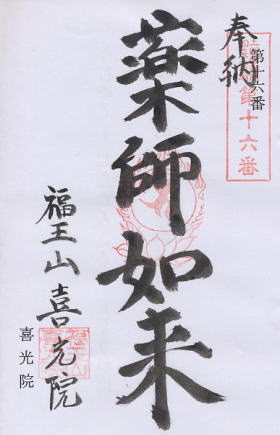 奉納
第十六番
第十六番
薬師如来
福王山 喜光院
喜光院